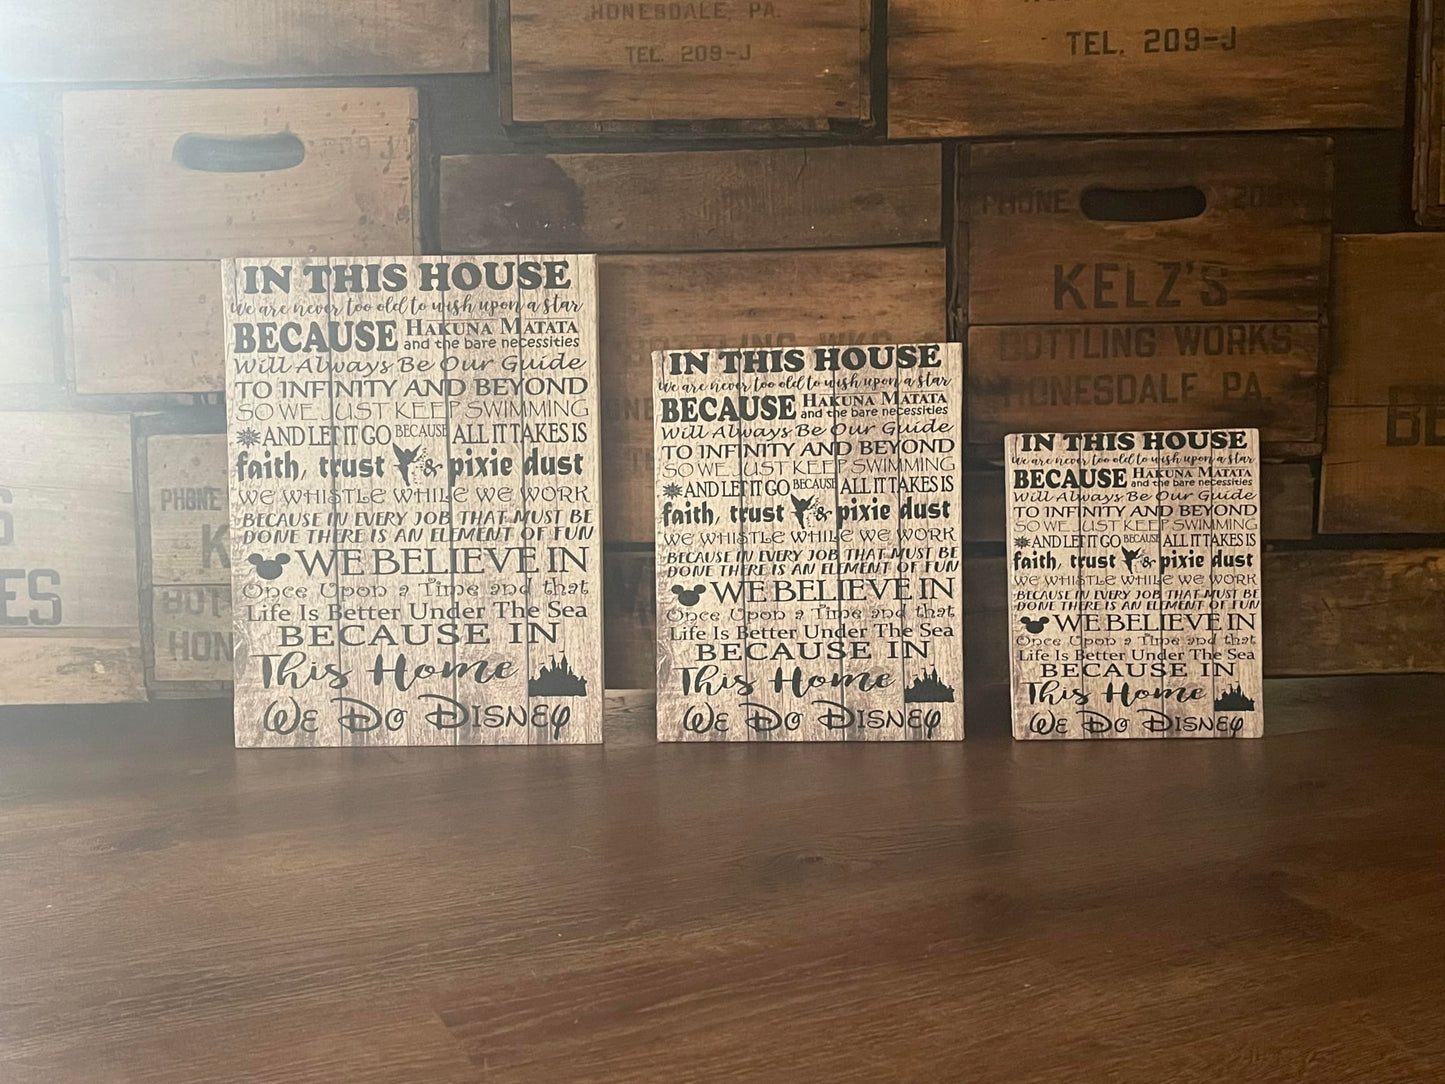 HONESDALE, PA.
TEL. 209-J
TEL. 209-J
209-J
PHONE 209
KELZ'S
BOTTLING WORKS
HONESDALE PA.
PHONE
K
BOT
HON
S
ES
BE
IN THIS HOUSE
We are never too old to wish upon a star
BECAUSE HAKUNA MATATA
and the bare necessities
Will Always Be Our Guide
TO INFINITY AND BEYOND
SO WE JUST KEEP SWIMMING
AND LET IT GO BECAUSE ALL IT TAKES IS
faith, trust & pixie dust
WE WHISTLE WHILE WE WORK
BECAUSE IN EVERY JOB THAT MUST BE
DONE THERE IS AN ELEMENT OF FUN
WE BELIEVE IN
Once Upon a Time and that
Life Is Better Under The Sea
BECAUSE IN
This Home
WE DO DISNEY
IN THIS HOUSE
We are never too old to wish upon a star
BECAUSE HAKUNA MATATA
and the bare necessities
Will Always Be Our Guide
TO INFINITY AND BEYOND
SO WE JUST KEEP SWIMMING
AND LET IT GO BECAUSE ALL IT TAKES IS
faith, trust & pixie dust
WE WHISTLE WHILE WE WORK
BECAUSE IN EVERY JOB THAT MUST BE
DONE THERE IS AN ELEMENT OF FUN
WE BELIEVE IN
Once Upon a Time and that
Life Is Better Under The Sea
BECAUSE IN
This Home
WE DO DISNEY
IN THIS HOUSE
We are never too old to wish upon a star
BECAUSE HAKUNA MATATA
and the bare necessities
Will Always Be Our Guide
TO INFINITY AND BEYOND
SO WE JUST KEEP SWIMMING
AND LET IT GO BECAUSE ALL IT TAKES IS
faith, trust & pixie dust
WE WHISTLE WHILE WE WORK
BECAUSE IN EVERY JOB THAT MUST BE
DONE THERE IS AN ELEMENT OF FUN
WE BELIEVE IN
Once Upon a Time and that
Life Is Better Under The Sea
BECAUSE IN
This Home
WE DO DISNEY